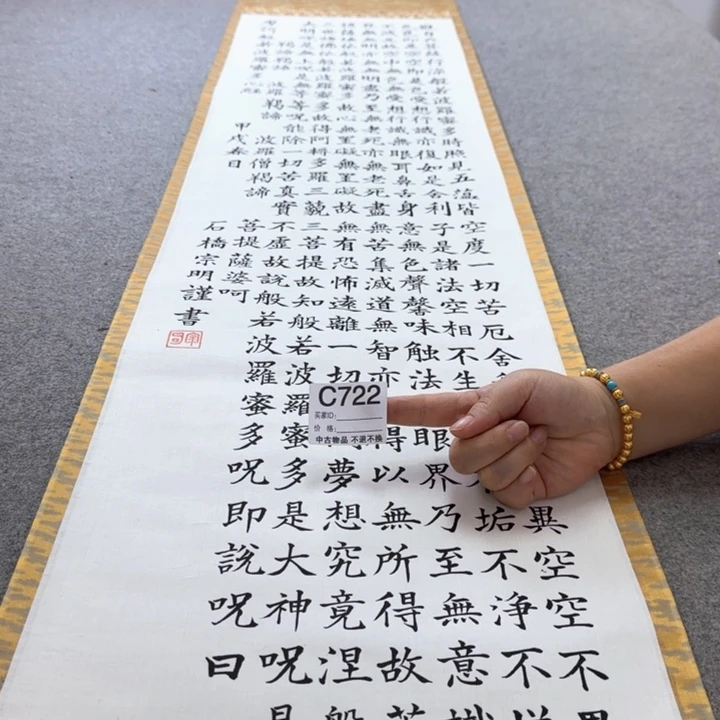 行深般若波羅蜜多時照見五蘊皆空度一切苦厄舍 異空空不異
色即是空空即是色受想行識亦復如是舍利子是諸法空相不生 不垢不淨不增
不減是故空中無色無受想行識無眼耳鼻舌身意無色聲馨味触法 眼界乃至無意識
界無無明亦無無明盡乃至無老死亦無老死盡無苦集滅道無智亦 得以無所得故菩
提薩埵依般若波羅蜜多故心無罣礙無罣礙故無有恐怖遠離一切 夢想究竟涅槃
三世諸佛依般若波羅蜜多故得阿耨多羅三藐三菩提故知般若波羅蜜多是大神呪是
大明呪是無上呪是無等等呪能除一切苦真實不虛故說般若波羅蜜多呪即說呪曰
羯諦羯諦 波羅羯諦 波羅僧羯諦 菩提薩婆呵
般若波羅蜜多心經
甲戌春日 石橋宗明謹書
C722
买家ID:
价 格:
中古物品 不退不换